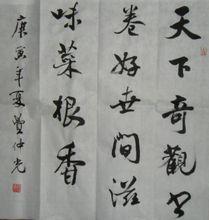 天下奇觀書
卷好世間滋
味菜根香
庚寅年夏費仲光